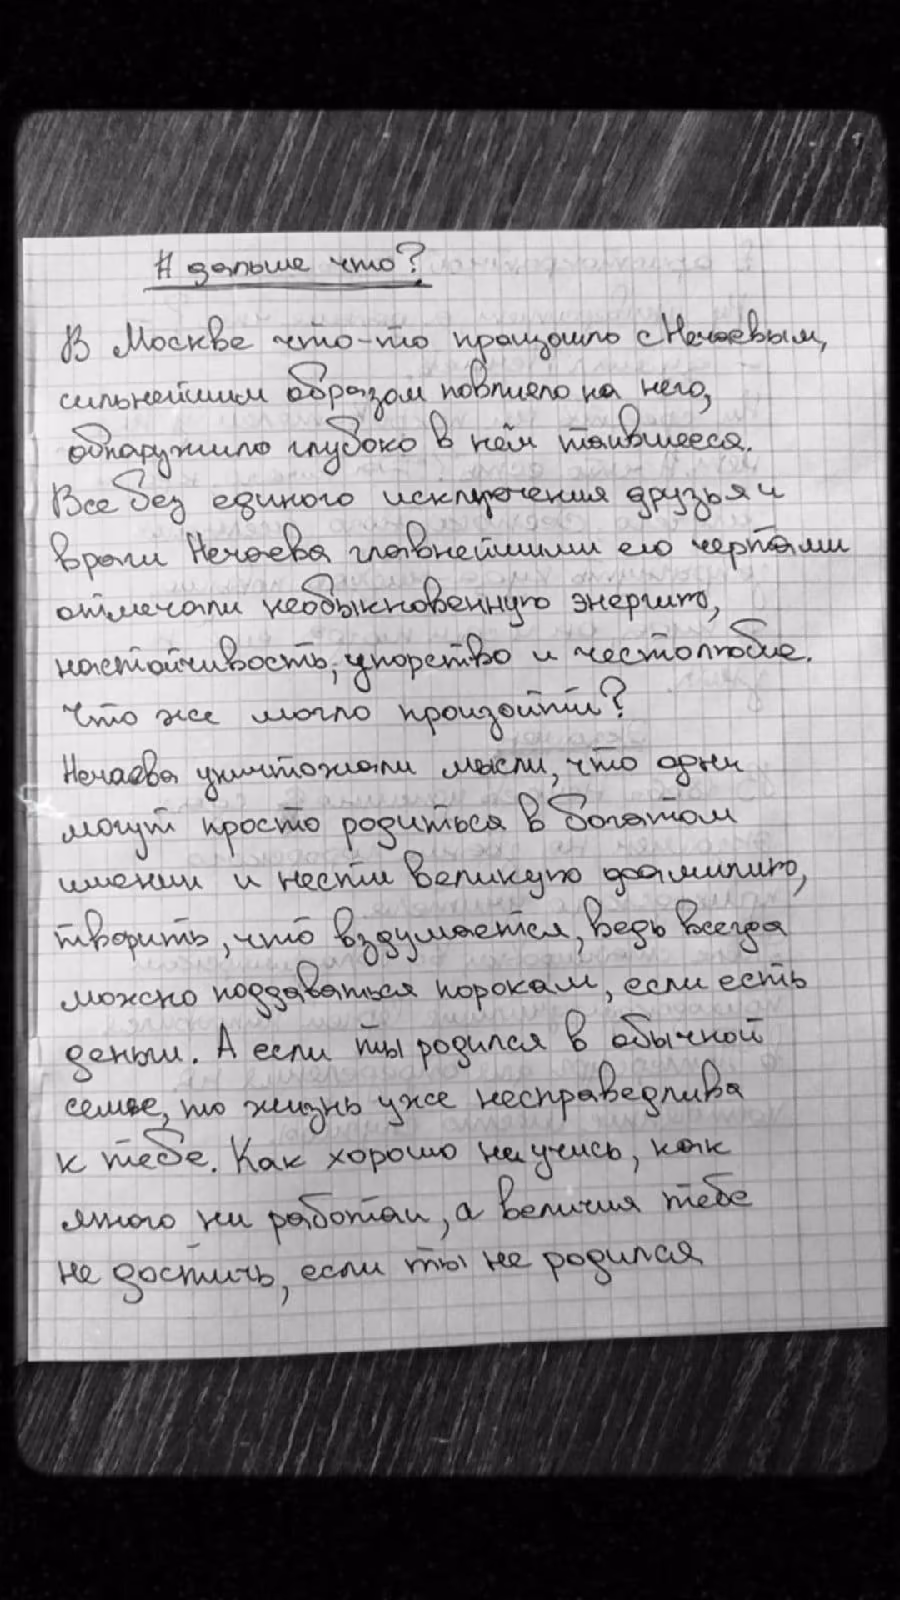 А дальше что?
В Москве что-то произошло с Нечаевым,
сильнейшим образом повлияло на него,
обнаружило глубоко в нём таившееся.
Все без единого исключения друзья и
враги Нечаева главнейшими его чертами
отмечали необыкновенную энергию,
настойчивость, упорство и честолюбие.
Что же могло произойти?
Нечаева уничтожали мысли, что одни
могут просто родиться в богатом
имении и нести великую фамилию,
творить, что вздумается, ведь всегда
можно поддаваться порокам, если есть
деньги. А если ты родился в обычной
семье, то жизнь уже несправедлива
к тебе. Как хорошо не учись, как
много ни работай, а величия тебе
не достичь, если ты не родился